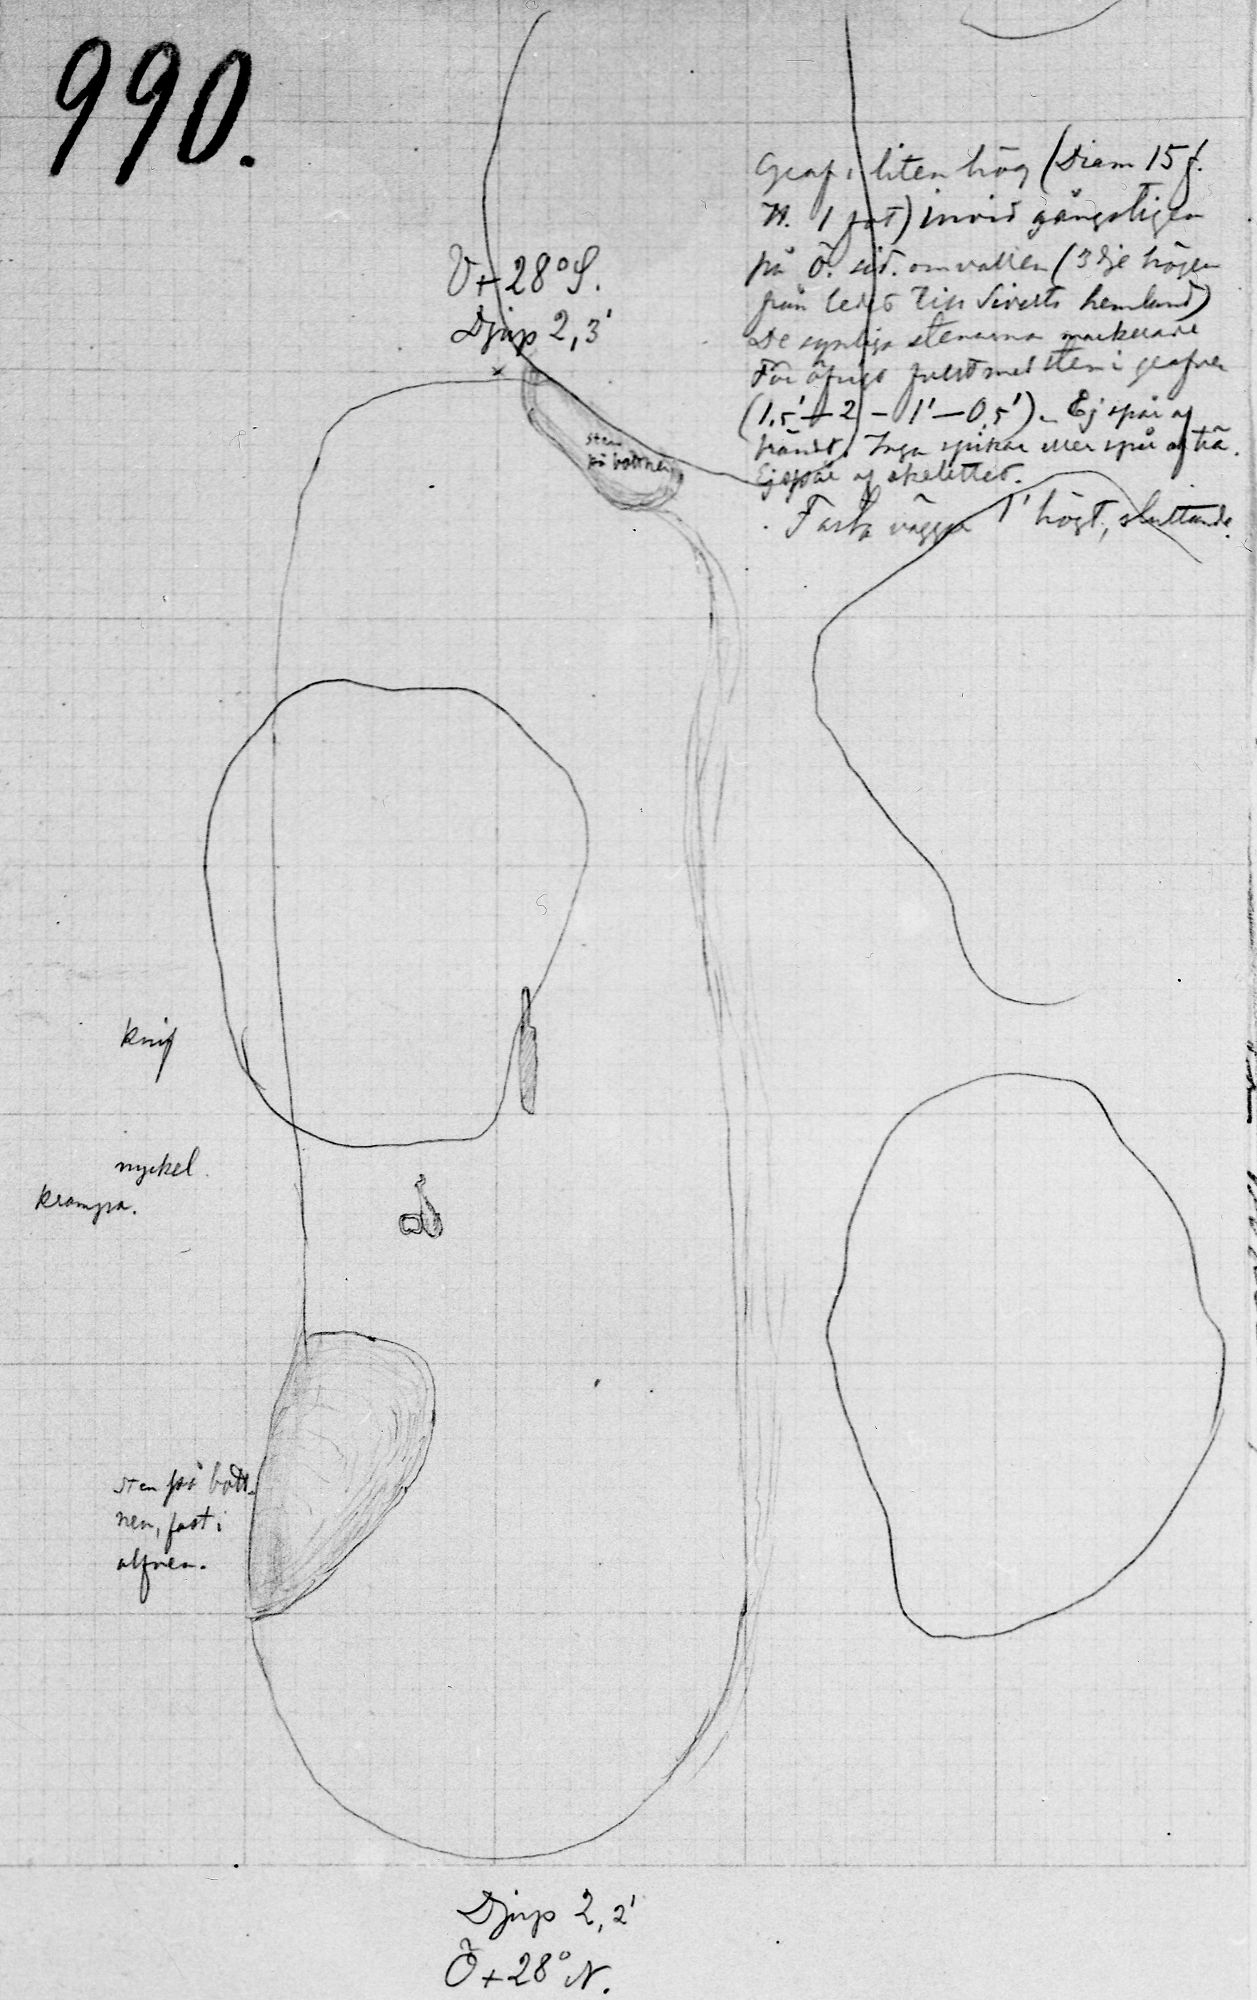 990.
Graf i liten hög (Diam 15 f.
H. 1 fot) invid gångstigen
på Ö. sid. om vallen (3dje högen
från ledet till Siverts hemland)
De synliga stenarna markerade
För öfrigt fullt med sten i grafven
(1,5' – 2 – 1' – 0,5'). Ej spår af
brändt. Inga spikar eller spår af trä.
Ej spår af skelettet.
Fasta väggar 1' högt, sluttande.
V + 28° S.
Djup 2,3'
sten
på bottnen
knif
nyckel.
krampa.
sten på bott-
nen, fast i
alfven.
Djup 2,2'
Ö + 28° N.